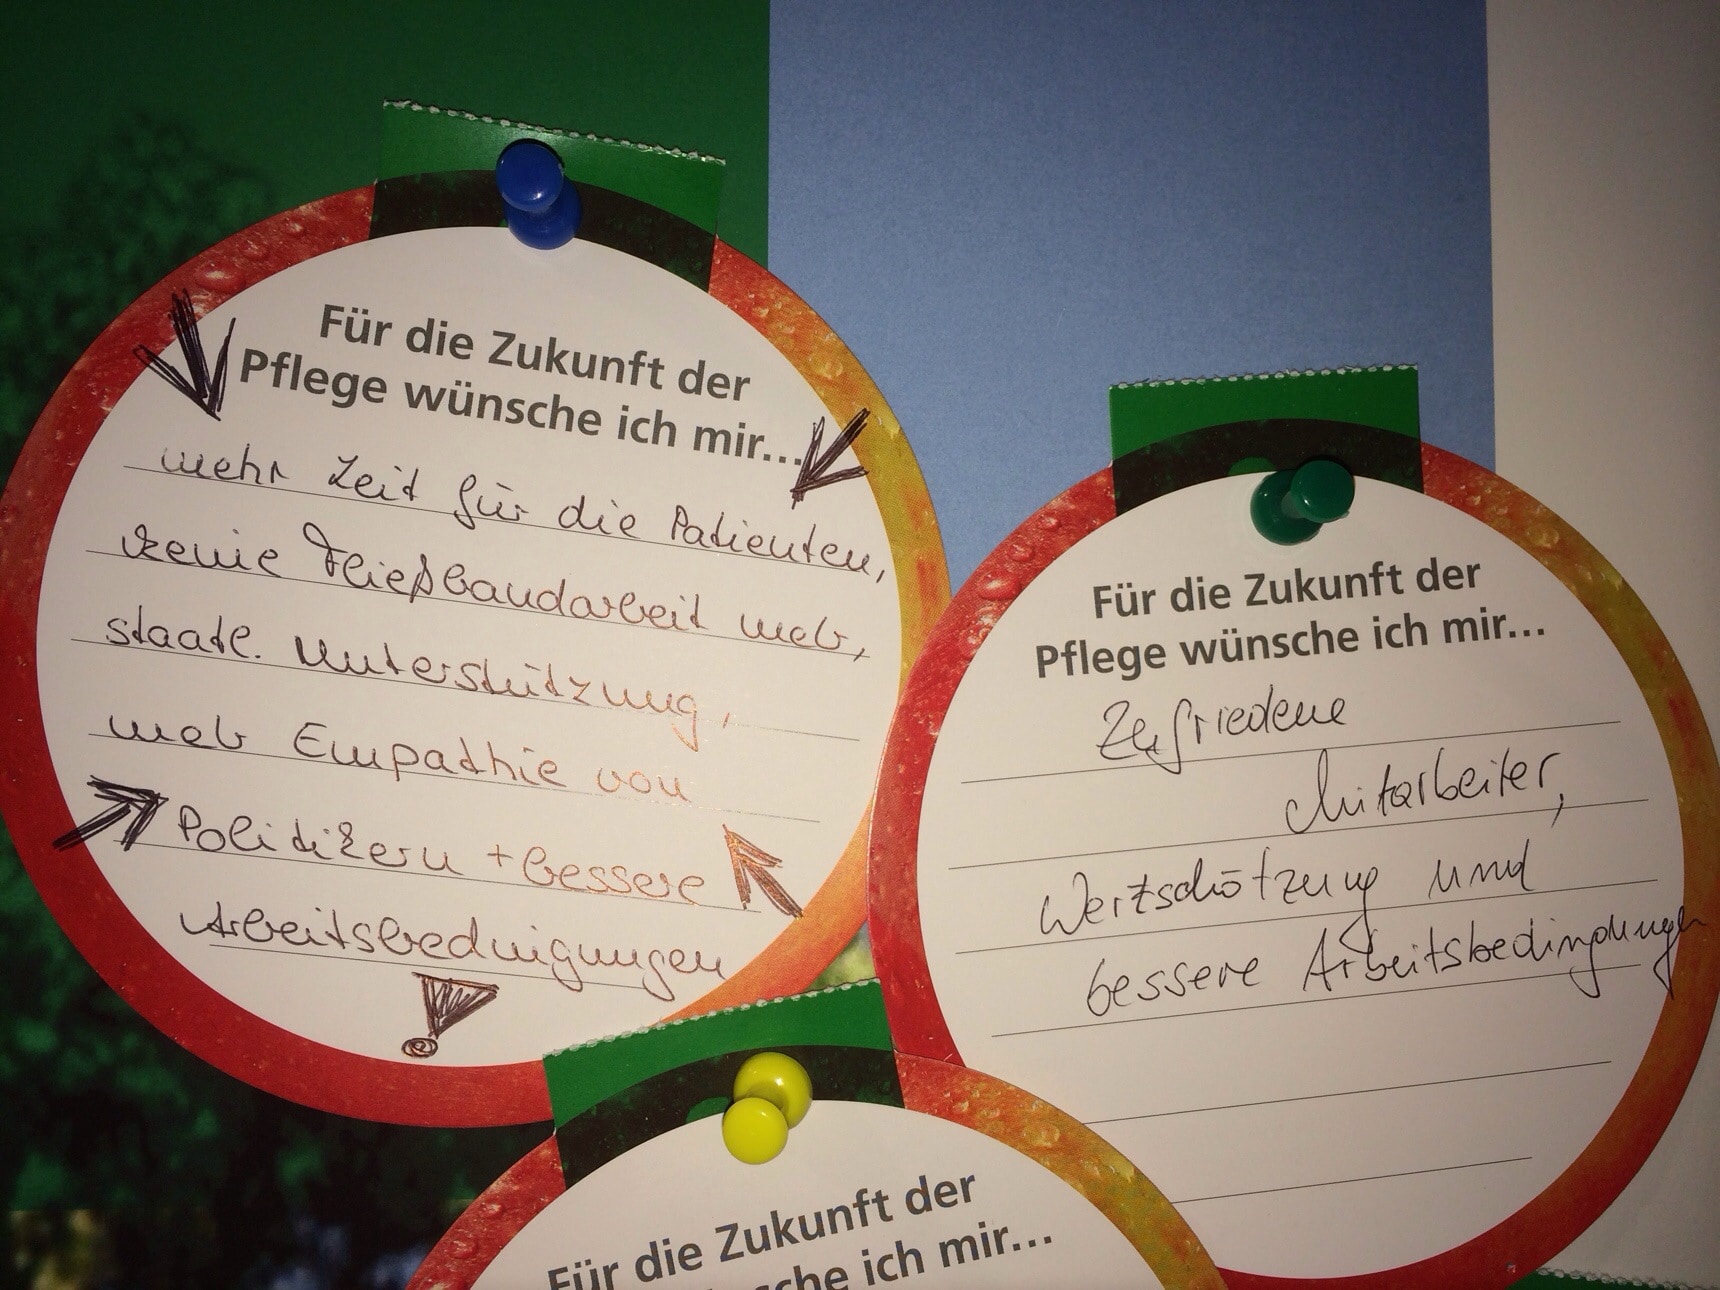 Für die Zukunft der
Pflege wünsche ich mir...
mehr Zeit für die Patienten,
keine Fließbandarbeit mehr,
staatl. Unterstützung,
mehr Empathie von
Politikern + bessere
Arbeitsbedingungen
!
Für die Zukunft der
Pflege wünsche ich mir...
Zufriedene
Mitarbeiter,
Wertschätzung und
bessere Arbeitsbedingungen
Für die Zukunft der
sche ich mir...